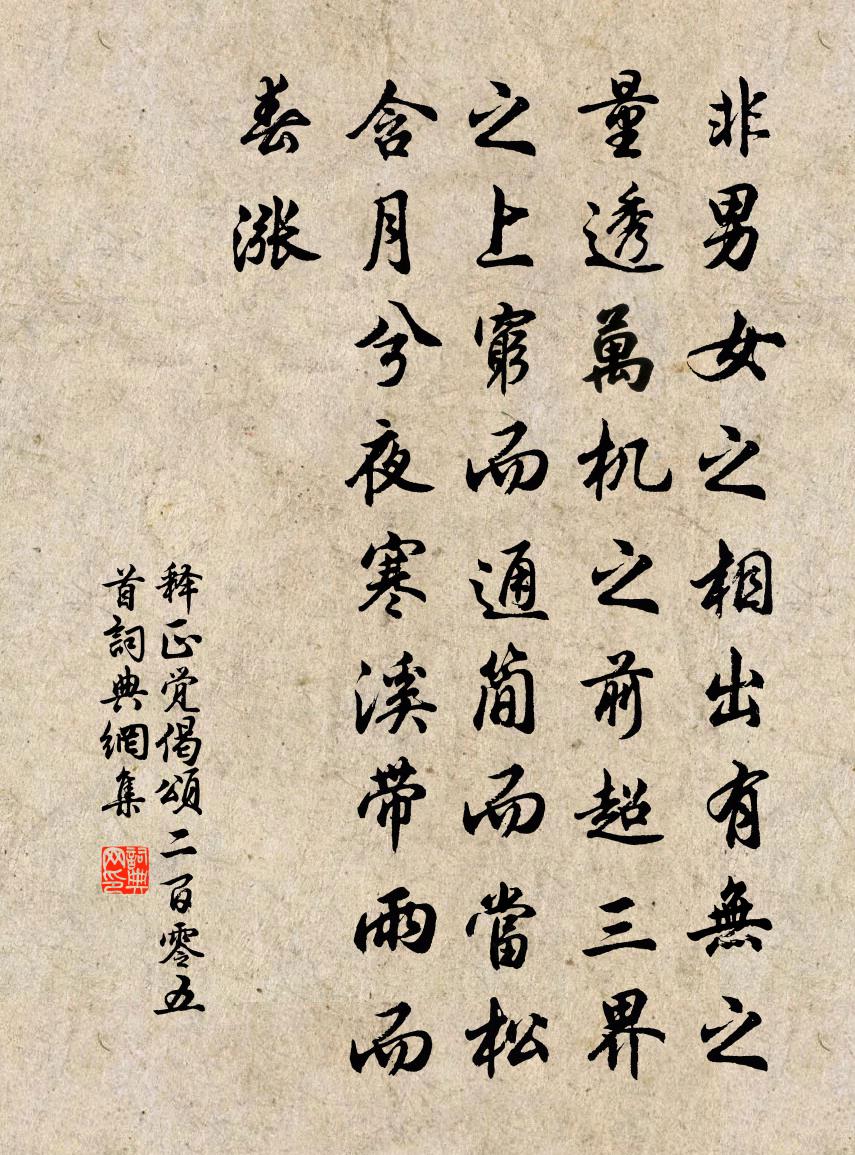 非男女之相出有無之
量透萬机之前超三界
之上窮而通简而當松
含月兮夜寒溪帶雨而
春漲
释正觉偈頌二百零五
首詞典網集
詞典网印